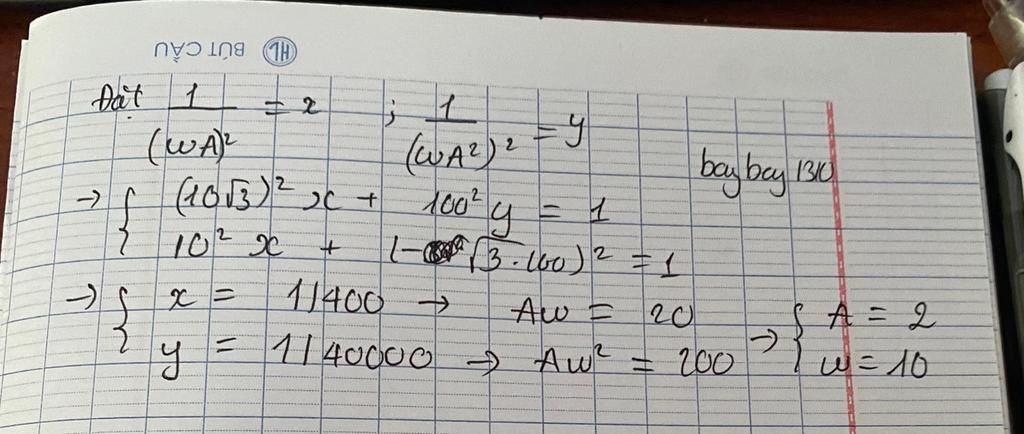 HL BÚT CẦU
Đặt 1/(ωA)² = x ; 1/(ωA²)² = y
baybay1310
→ { (10√3)² x + 100² y = 1
10² x + (-√3.100)² = 1
→ { x = 1/400 → Aω = 20
y = 1/40000 → Aω² = 200
→ { A = 2
ω = 10